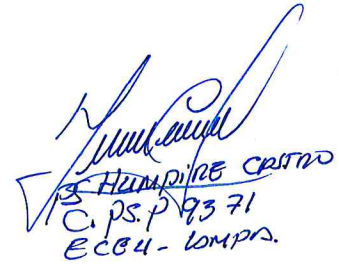 Ps HUMPIRE CASTRO
C. PS. P 9371
ECE4 - LAMPA.